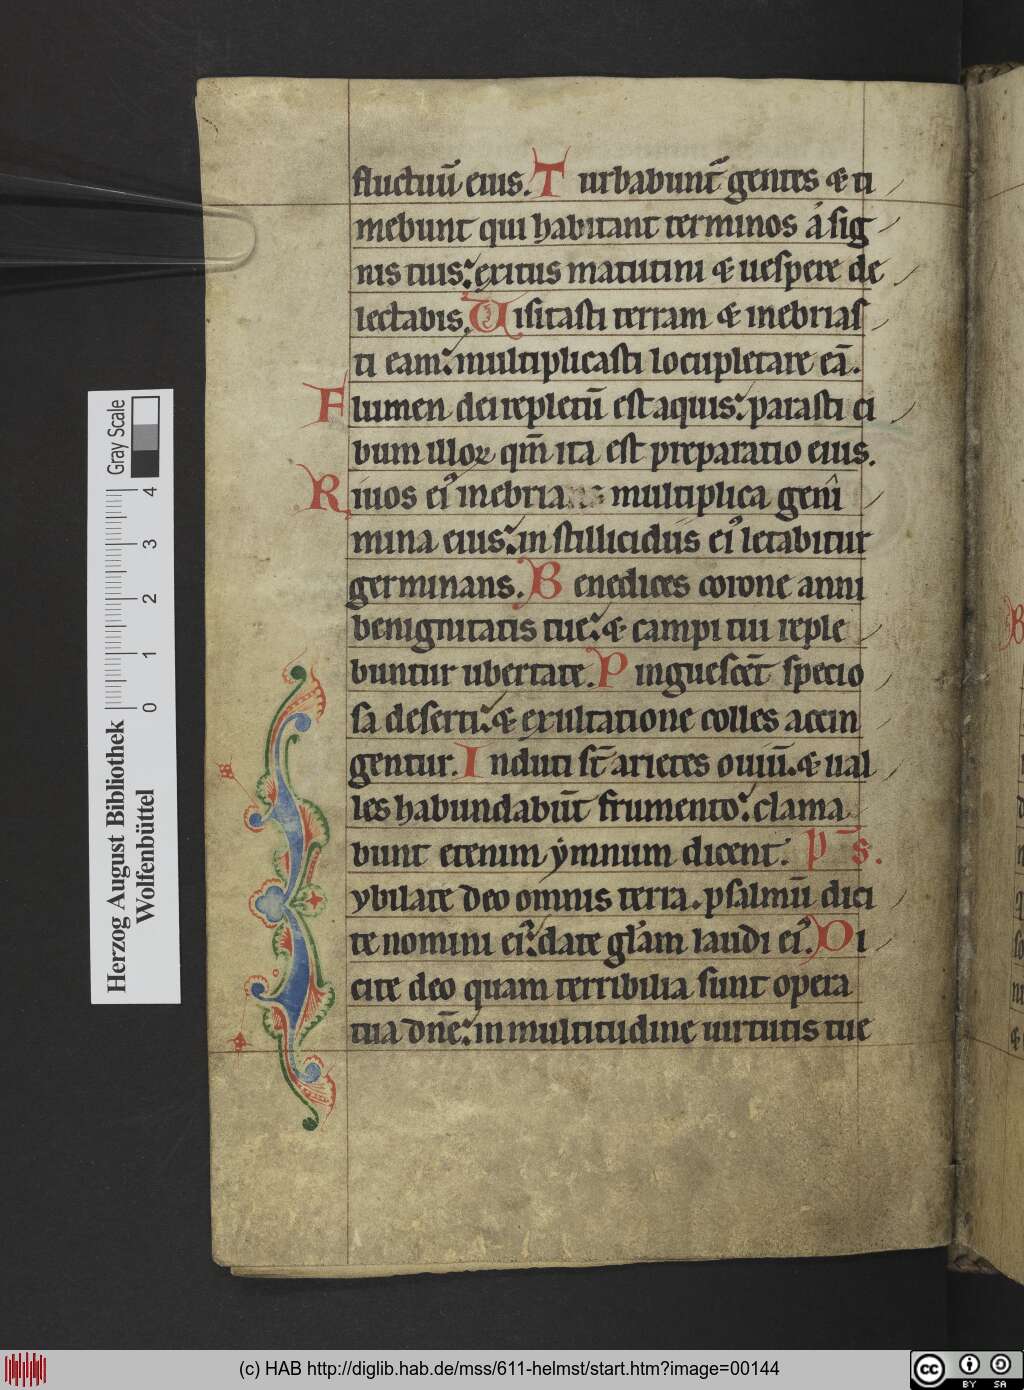 fluctuū eius. Turbabunt̄ gentes & ti
mebunt qui habitant terminos a sig
nis tuis: exitus matutini & uespere de
lectabis. Uisitasti terram & inebrias
ti eam: multiplicasti locupletare eā.
Flumen dei repletū est aquis: parasti ci
bum illoꝝ qm̄ ita est preparatio eius.
Riuos ei⁹ inebrians multiplica geni
mina eius: in stillicidiis ei⁹ letabitur
germinans. Benedices corone anni
benignitatis tue: & campi tui reple
buntur ubertate. Pinguesce͞t specio
sa deserti: & exultatione colles accin
gentur. Induti st̄ arietes ouiū. & ual
les habundabūt frumento: clama
bunt etenim ẏmnum dicent. p̄s.
ybilate deo omnis terra. psalmū dici
te nomini ei⁹: date gl̄am laudi ei⁹. Di
cite deo quam terribilia sunt opera
tua dn̄e: in multitudine uirtutis tue
Herzog August Bibliothek
Wolfenbüttel
Gray Scale
0 1 2 3 4
(c) HAB http://diglib.hab.de/mss/611-helmst/start.htm?image=00144
cc BY SA